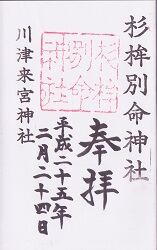 杉桙別命神社
奉拝
平成二十五年
二月二十四日
川津来宮神社